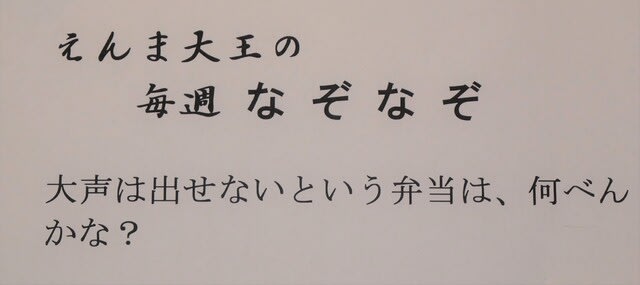 えんま大王の
毎週 なぞなぞ
大声は出せないという弁当は、何べん
かな？